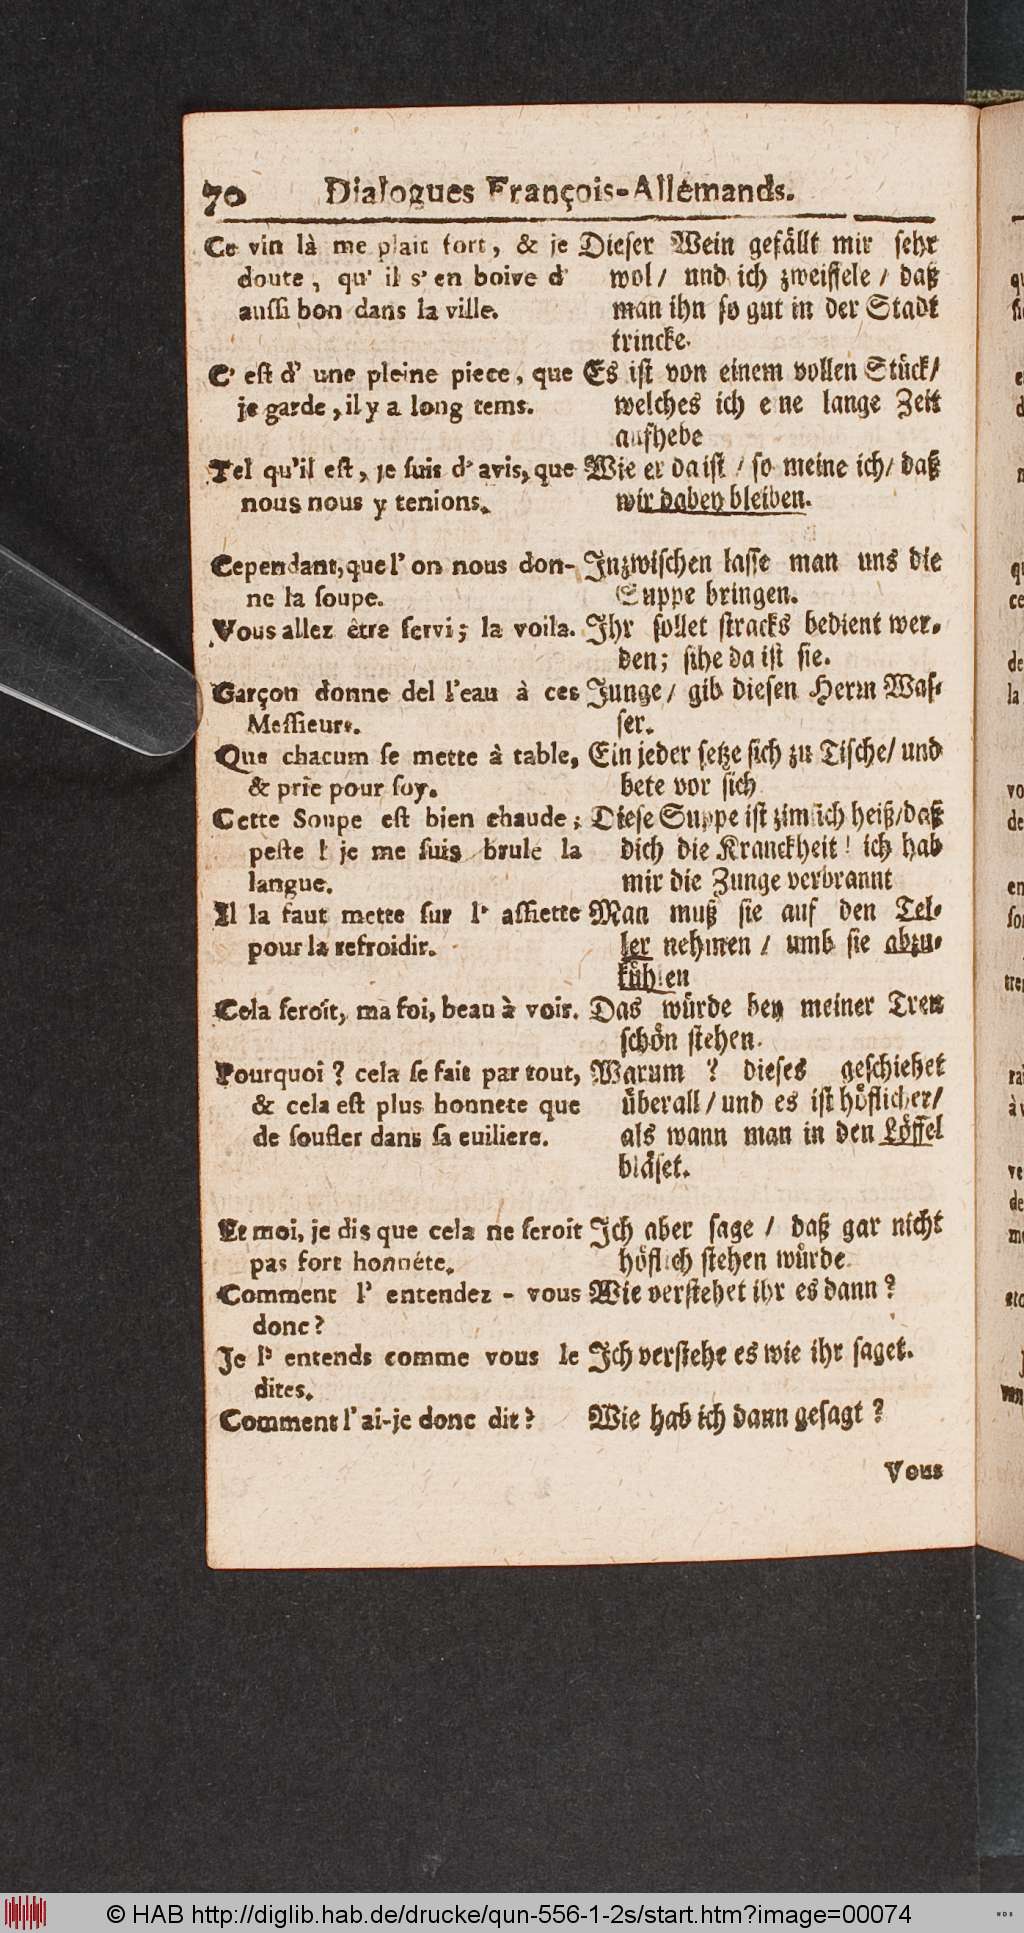 70 Dialogues François-Allemands.
Ce vin là me plait fort, & je
doute, qu' il s' en boive d'
aussi bon dans la ville.
C' est d' une pleine piece, que
je garde, il y a long tems.
Tel qu'il est, je suis d' avis, que
nous nous y tenions.
Cependant, que l' on nous don-
ne la soupe.
Vous allez être servi; la voila.
Garçon donne del l'eau à ces
Messieurs.
Que chacum se mette à table,
& prïe pour soy.
Cette Soupe est bien chaude;
peste ! je me suis brule la
langue.
Il la faut mette sur l' assiette
pour la refroidir.
Cela seroît, ma foi, beau à voir.
Pourquoi ? cela se fait par tout,
& cela est plus honnete que
de soufler dans sa cuiliere.
Et moi, je dis que cela ne seroit
pas fort honnéte.
Comment l' entendez - vous
donc?
Je l' entends comme vous le
dites.
Comment l' ai-je donc dit?
Dieser Wein gefällt mir sehr
wol/ und ich zweiffele / daß
man ihn so gut in der Stadt
trincke.
Es ist von einem vollen Stück/
welches ich e ne lange Zeit
aufhebe
Wie er da ist / so meine ich/ daß
wir dabey bleiben.
Inzwischen lasse man uns die
Suppe bringen.
Ihr sollet stracks bedient wer-
den; sihe da ist sie.
Junge/ gib diesen Herrn Was-
ser.
Ein jeder setze sich zu Tische/ und
bete vor sich
Diese Suppe ist zimlich heiß/daß
dich die Kranckheit! ich hab
mir die Zunge verbrannt
Man muß sie auf den Tel-
ler nehmen / umb sie abzu-
kühlen
Das würde bey meiner Treu
schön stehen.
Warum ? dieses geschiehet
überall / und es ist höflicher/
als wann man in den Löffel
bläset.
Ich aber sage / daß gar nicht
höflich stehen würde.
Wie verstehet ihr es dann?
Ich verstehe es wie ihr saget.
Wie hab ich dann gesagt ?
Vous
© HAB http://diglib.hab.de/drucke/qun-556-1-2s/start.htm?image=00074